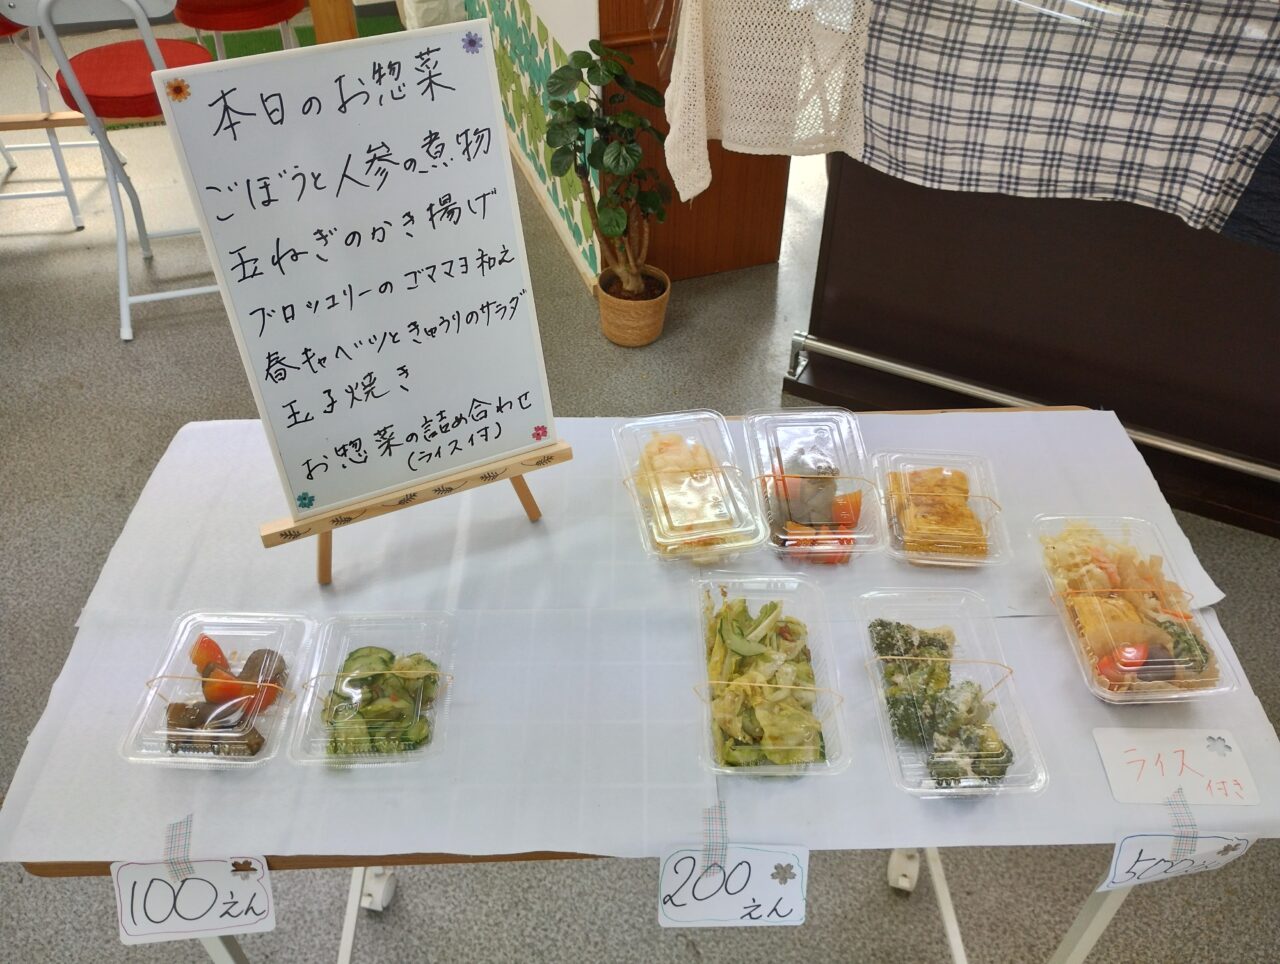 本日のお惣菜
ごぼうと人参の煮物
玉ねぎのかき揚げ
ブロッコリーのゴママヨ和え
春キャベツときゅうりのサラダ
玉子焼き
お惣菜の詰め合わせ
(ライス付)
ライス
付き
100えん
200
えん
500えん